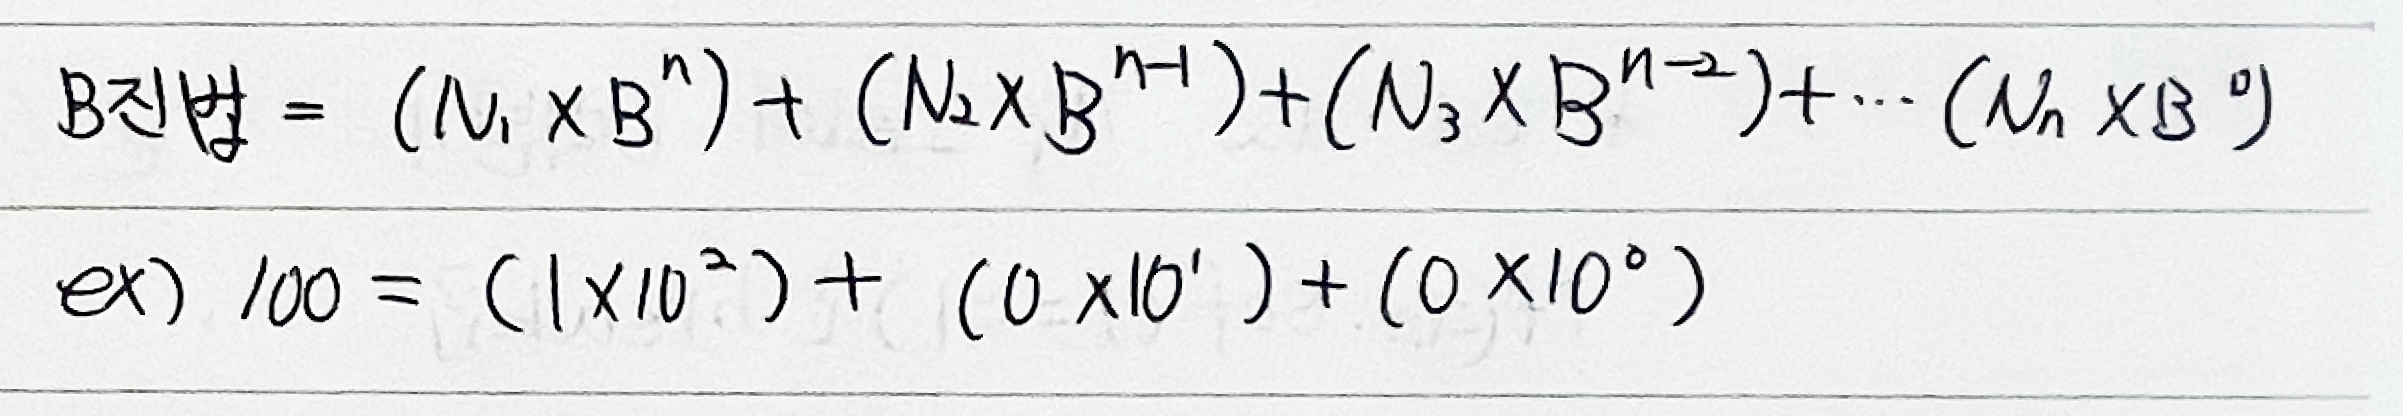 B진법 = (N₁ × Bⁿ) + (N₂ × Bⁿ⁻¹) + (N₃ × Bⁿ⁻²) + ··· (Nₙ × B⁰)
ex) 100 = (1 × 10²) + (0 × 10¹) + (0 × 10⁰)